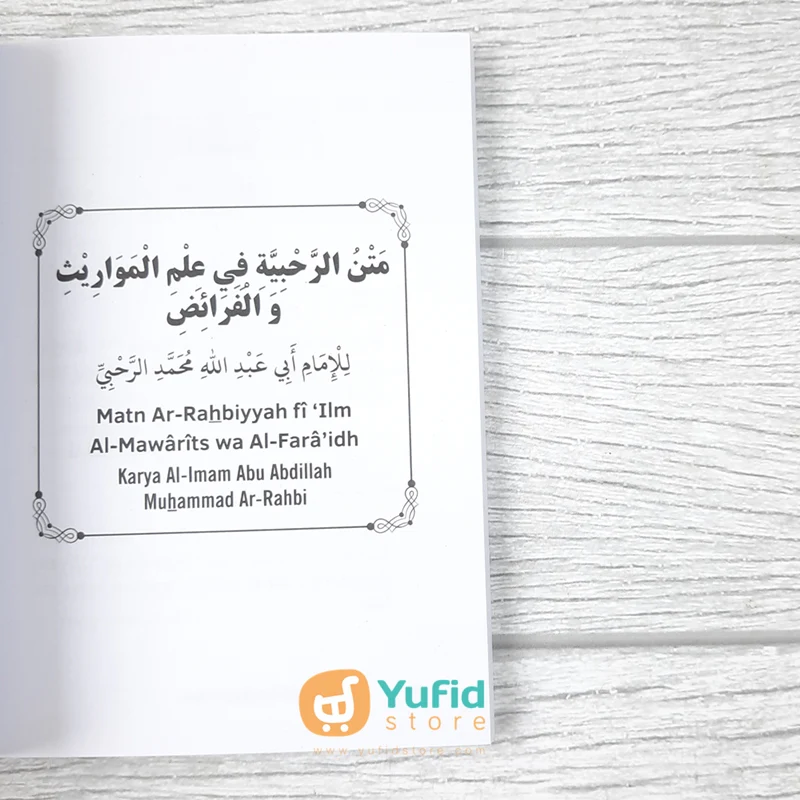 مَتْنُ الرَّحْبِيَّةِ فِي عِلْمِ الْمَوَارِيْثِ
وَ الْفَرَائِضِ
لِلْإِمَامِ أَبِي عَبْدِ اللهِ مُحَمَّدِ الرَّحْبِيِّ
Matn Ar-Raẖbiyyah fî ‘Ilm
Al-Mawârîts wa Al-Farâ’idh
Karya Al-Imam Abu Abdillah
Muẖammad Ar-Rahbi
Yufid
store
www.yufidstore.com